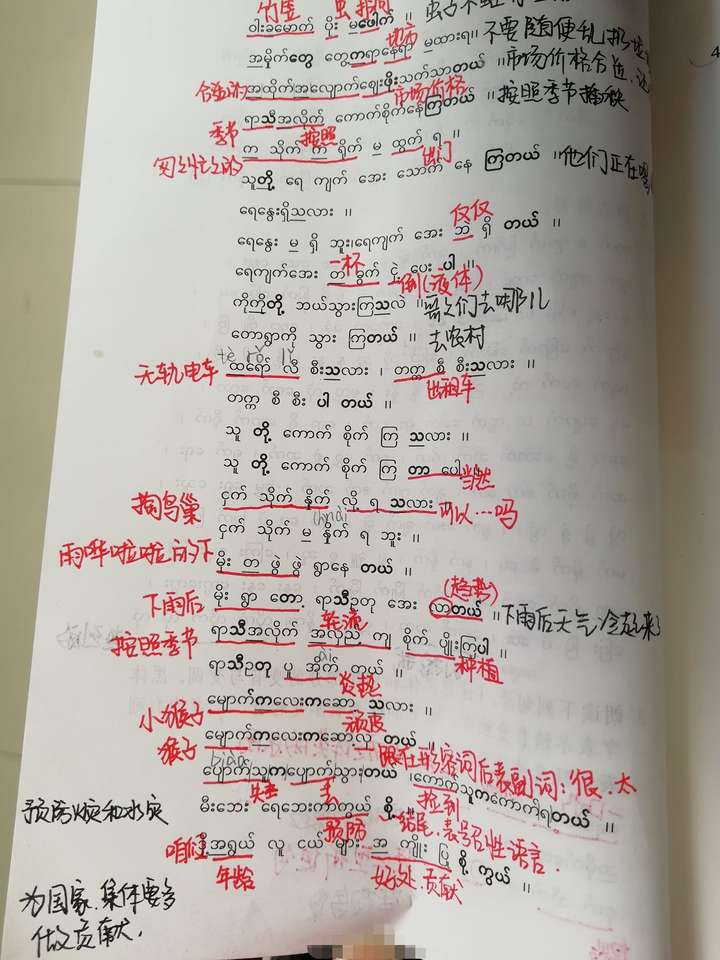 竹虱 虫
ဝါးခမောက် ပိုး မဖေါက်
အမှိုက်တွေ တွေ့ကရာနေရာ မထားရ။ 不要随便乱扔
地方
အထိုက်အလျောက်ဈေးဖိုးသက်သာတယ် ။ 市场价格合适
合适的 市场价格
ရာသီအလိုက် ကောက်စိုက်နေကြတယ် ။ 按照季节插秧
季节 按照
က သိုက် က ရိုက် မ ထွက် ရ ။
匆匆忙忙的 出门
သူတို့ ရေ ကျက် အေး သောက် နေ ကြတယ် ။ 他们正在喝
ရေနွေးရှိသလား ။
仅仅
ရေနွေး မ ရှိ ဘူး၊ရေကျက် အေး ဘဲ ရှိ တယ် ။
ရေကျက်အေး တ ခွက် ငှဲ့ ပေး ပါ ။
一杯 倒(液体)
ကိုကိုတို့ ဘယ်သွားကြသလဲ ။ 哥哥们去哪儿
တောရွာကို သွား ကြတယ် ။ 去农村
无轨电车 ထရော် လီ စီးသလား ၊ တက္က စီ စီးသလား ။
出租车
တက္က စီ စီး ပါ တယ် ။
သူ တို့ ကောက် စိုက် ကြ သလား ။
သူ တို့ ကောက် စိုက် ကြ တာ ပေါ့
当然
掏鸟巢 ငှက် သိုက် နှိုက် လို့ ရ သလား 可以…吗
ငှက် သိုက် မ နှိုက် ရ ဘူး ။
雨哗啦啦的下 မိုး တ ဖွဲ ဖွဲ ရွာနေ တယ် ။
(趋势)
下雨后 မိုး ရွာ တော့ ရာသီဥတု အေး လာတယ် ။ 下雨后天气冷起来了
轮流
按照季节 ရာသီအလိုက် အလှည့် ကျ စိုက် ပျိုးကြပါ ။
种植
ရာသီဥတု ပူ အိုက် တယ် ။
炎热
小猴子 မျောက်ကလေးကဆော့ သလား ။
顽皮
猴子 မျောက်ကလေးကဆော့လှ တယ် ။
跟在形容词后表副词:很、太
ပျောက်သူကပျောက်သွားတယ် ၊ကောက်သူကကောက်ရတယ် ။
失主 丢 捡到
预防火灾和水灾 မီးဘေး ရေဘေးကာကွယ် စို့ ။
预防 结尾,表号召性语言
咱们 ဒို့အရွယ် လူ ငယ် များ အ ကျိုး ပြု စို့ ကွယ် ။
年龄 好处,贡献
为国家、集体要多
做贡献.